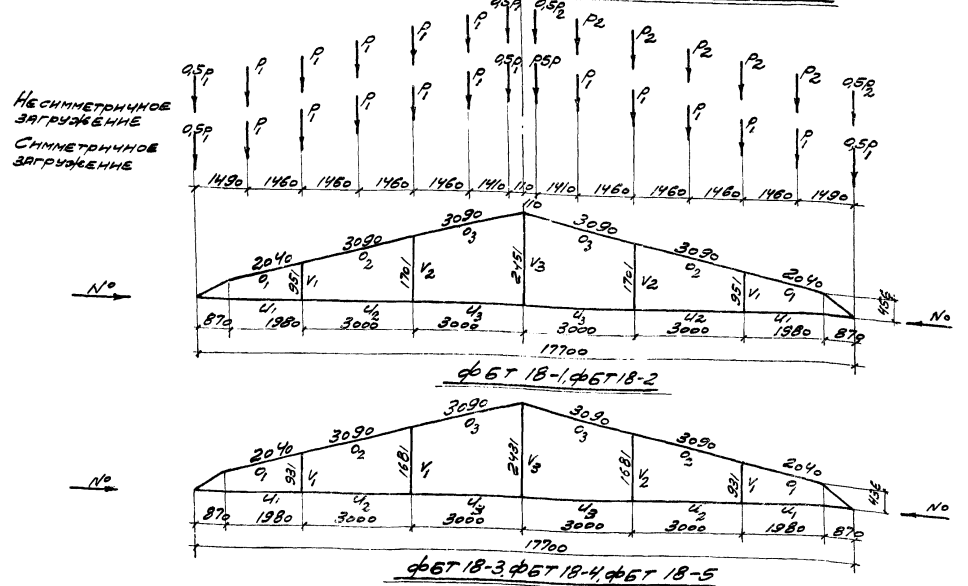 0,5P₁ 0,5P₂
P₁ P₁ P₁ P₁ P₁ P₂ P₂ P₂ P₂ P₂
0,5P₁ 0,5P₂
Несимметричное
загружение
P₁ P₁ P₁ P₁ P₁ 0,5P₁ 0,5P P₁ P₁ P₁ P₁ P₁
Симметричное
загружение
0,5P₁ 0,5P₁
1490 1460 1460 1460 1460 1410 110 1410 1460 1460 1460 1460 1490
110
2040 3090 3090 3090 3090 2040
O₁ O₂ O₃ O₃ O₂ O₁
951 V₁ 1701 V₂ 2451 V₃ 1701 V₂ 951 V₁ 456
N⁰ N⁰
U₁ U₂ U₃ U₃ U₂ U₁
870 1980 3000 3000 3000 3000 1980 870
17700
ФБТ 18-1, ФБТ 18-2
2040 3090 3090 3090 3090 2040
O₁ O₂ O₃ O₃ O₂ O₁
931 V₁ 1681 V₁ 2431 V₃ 1681 V₂ 931 V₁ 436
N⁰ N⁰
U₁ U₂ U₃ U₃ U₂ U₁
870 1980 3000 3000 3000 3000 1980 870
17700
ФБТ 18-3, ФБТ 18-4, ФБТ 18-5